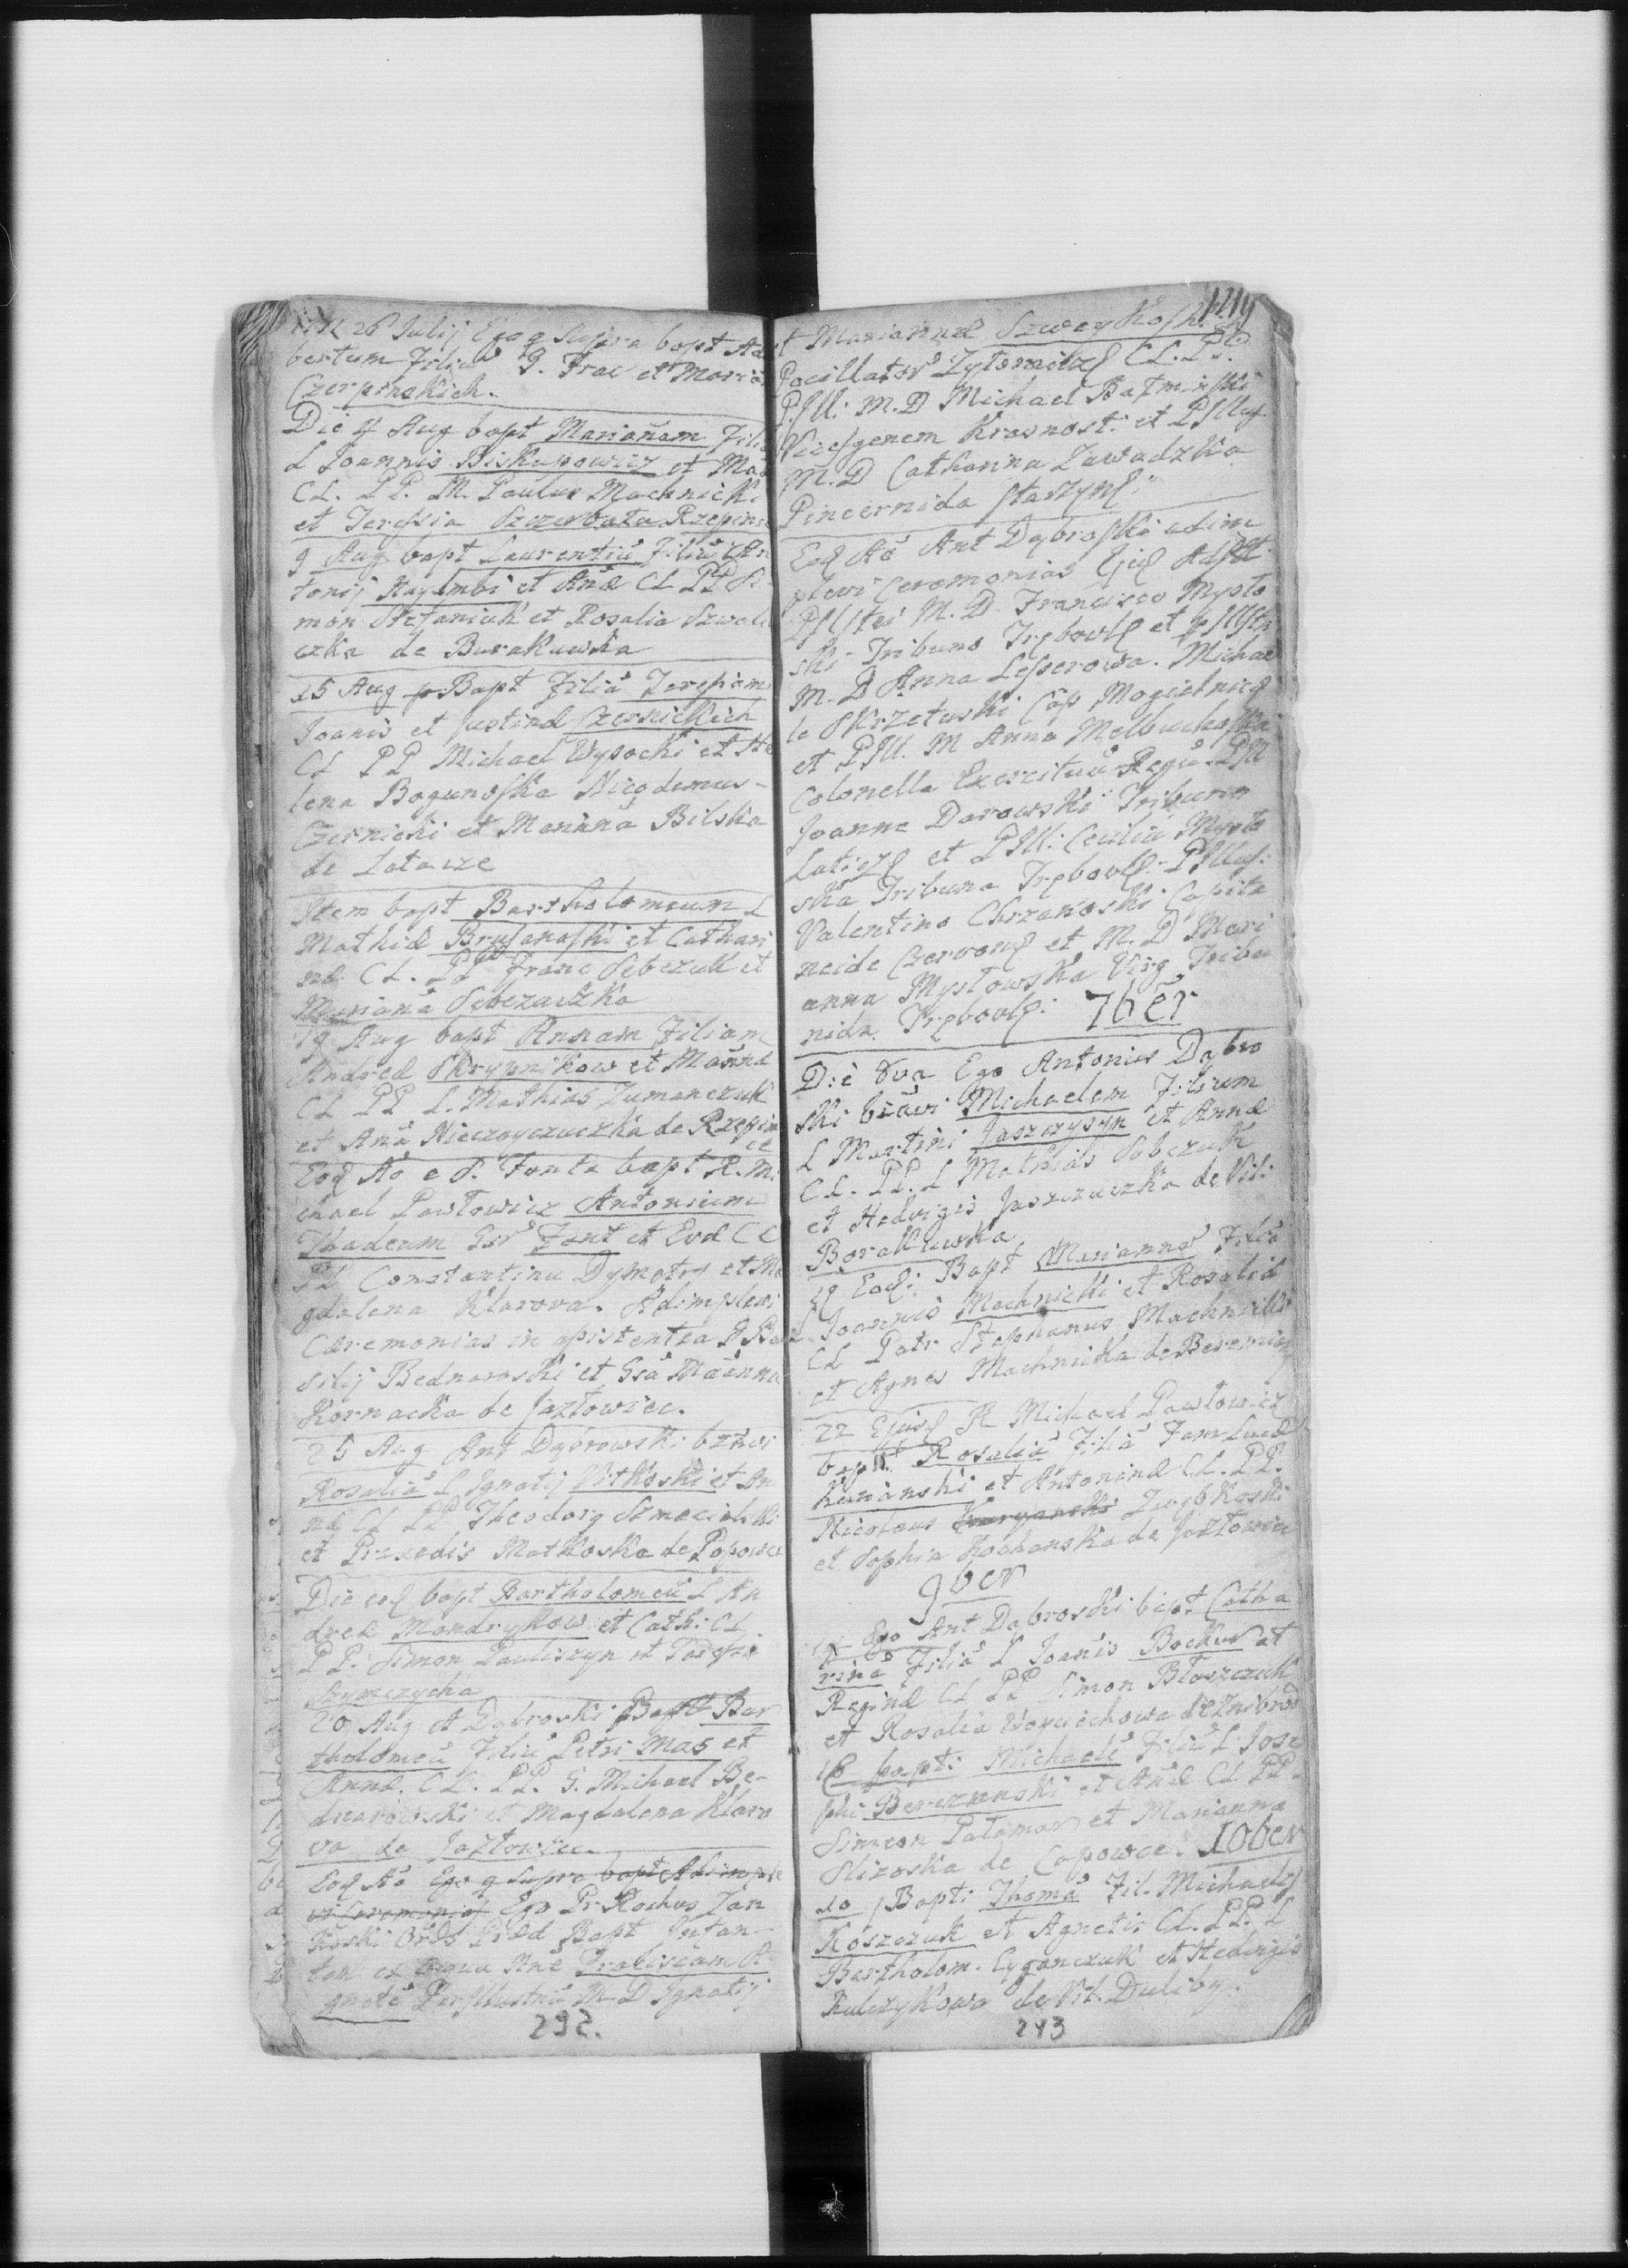 26 Julij Ego q Supra bapt Ad
bertum Filiu G. Frac et Maria
Czerpinskich.
Die 4 Aug bapt Marianam Fili
L Joannis Biskupowicz et Ma
CL. PP. M. Paulus Machnicki
et Teressia Szczerbata Rzepin
9 Aug bapt Laurentiu Filiu An
tonij Hayimbi et Anæ CL PP Si
mon Stefaniuk et Rosalia Szwe
czka de Burakuwka
15 Aug Bapt Filia Teresiam
Joanis et Justinæ Czernickich
CL PP Michael Wysocki et He
lena Bogunoska Nicodemus
Czernicki et Marinna Bilska
de Latacze
Item bapt Bartholomeum L
Mathiæ Brusanoski et Cathari
næ CL. PP Franc Sobczuk et
Mariana Sobczuczka
19 Aug bapt Annam Filiam
Andreæ Skrypnikow et Marinæ
CL PP L. Mathias Zumanczuk
et Ana Nieczayczuczka de Rzepin
ce
Eod Ao e S. Fonte bapt R. Mi
chael Pawlowicz Antonium
Thadeum Gsr Font et Evæ CL
PP Constantinu Dymotry et Ma
gdalena Klarova. Adimplevi
Cæremonias in asistentia
silij Bednaroski et Gsa Marinna
Kornacka de Jazlowiec.
25 Aug Ant Dąbrowski bzavi
Rosalia L Ignatij Witkoski et An
næ CL PP Theodory Szmecialski
et Praxedis Matkoska de Popowce
Die eod bapt Bartholomeu L An
dreæ Mandrykow et Cath: CL.
PP. Simon Pauliszyn et Teressia
Szymczycha
20 Aug A Dąbroski Bapt Bar
tholomeu Filiu Petri Mas et
Annæ. CL. PP. G. Michael Be-
dnarowski et Magdalena Klaro
va de Jazlowiec
Eod Ao Ego q Supra bapt Adimple
vi Ceremonias Ego Pr Rochus Zan
koski Ords Præd Bapt Infan-
tem ex Aqua Ane Praliseam A
gnete Perillustriu M D Ignatij
292.
149
t Mariannæ Szweykoski
Pocillator Zytomirz CL. PP.
P.Ill. M. D Michael Bazminski
Vicesgerem Krasnost. et P.Illus
M. D Catharina Zawadzka
Pincernida Staszyns
Eod Ao Ant Dąbroski adim
plevi Ceremonias Ejus Asist
P.Illstri M. D. Francisco Mysto
ski Tribuno Trębowl et P.Illstri
M. D Anna Lesserowa. Michae
le Skrzetuski Cap Magielnic
et P.Ill. M Anna Melbuchoska
Colonella Exercituu Regu. P.Ill
Joanne Darowski Tribuno
Latic et P.Ill: Cecilia Mysto
ska Tribuna Trębowl: P.Illus:
Valentino Chrzanoski Capita
neide Czerwon et M. D Mari
anna Mystowska Virg Tribu
nida Trębowl: 7ber
Die 8va Ego Antonius Dąbro
ski bzavi Michaelem Filium
L Martini Jaszczyszyn et Annæ
CL. PP. L Mathias Sobczuk
et Hedvigis Jaszczuczka de Vil:
Borakuwka
19 Eod: Bapt Marianna Filia
Joannis Machnicki et Rosaliæ
CL Patr Stephanus Machnicki
et Agnes Machnicka de Beremian
22 Ejusd R Michael Pawlowicz
bapt Rosalia Filia Fam Lucæ
Kunanski et Antoninæ CL. PP.
Nicolaus Kuryanski Zarębkoski
et Sophia Kochanska de Jazlowiec
9ber
Ego Ant Dąbroski bapt Catha
rina Filia L Joanis Bockun et
Reginæ CL PP Simon Bloszczuk
et Rosalia Woyciechowa de Znibrod
18 bapt: Michaele Filiu L Jose
phi Berezunski et Anæ CL PP
Simeon Patamar et Marianna
Slizoska de Capowce. 10ber
10 Bapt: Thoma Fil. Michaelis
Koszczuk et Agnetis CL. PP. L
Bartholom. Cyganczuk et Hedvigis
Kulczykowa de Vil. Duliby.
293